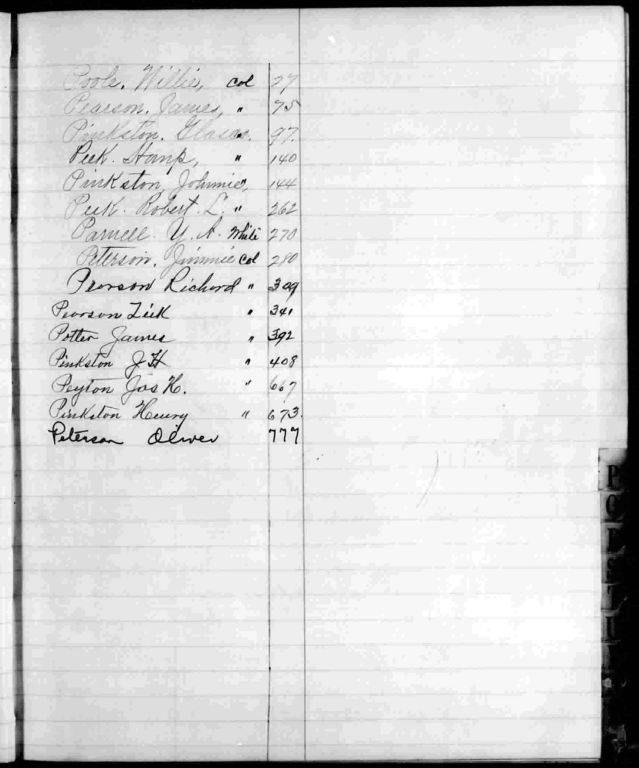 Poole, Willie, Col 27
Pearson, James, " 75
Pinkston, 97
Peek. Hamp, " 140
Pinkston, Johnnie, " 144
Peek. Robert L. " 262
Parnell Y. A. White 270
Peterson, Jimmie Col 280
Pearson Richard " 309
Pearson Zeek " 341
Potter James " 392
Pinkston J H " 408
Peyton Jas H. " 667
Pinkston Henry " 673
Peterson Oliver 777
P